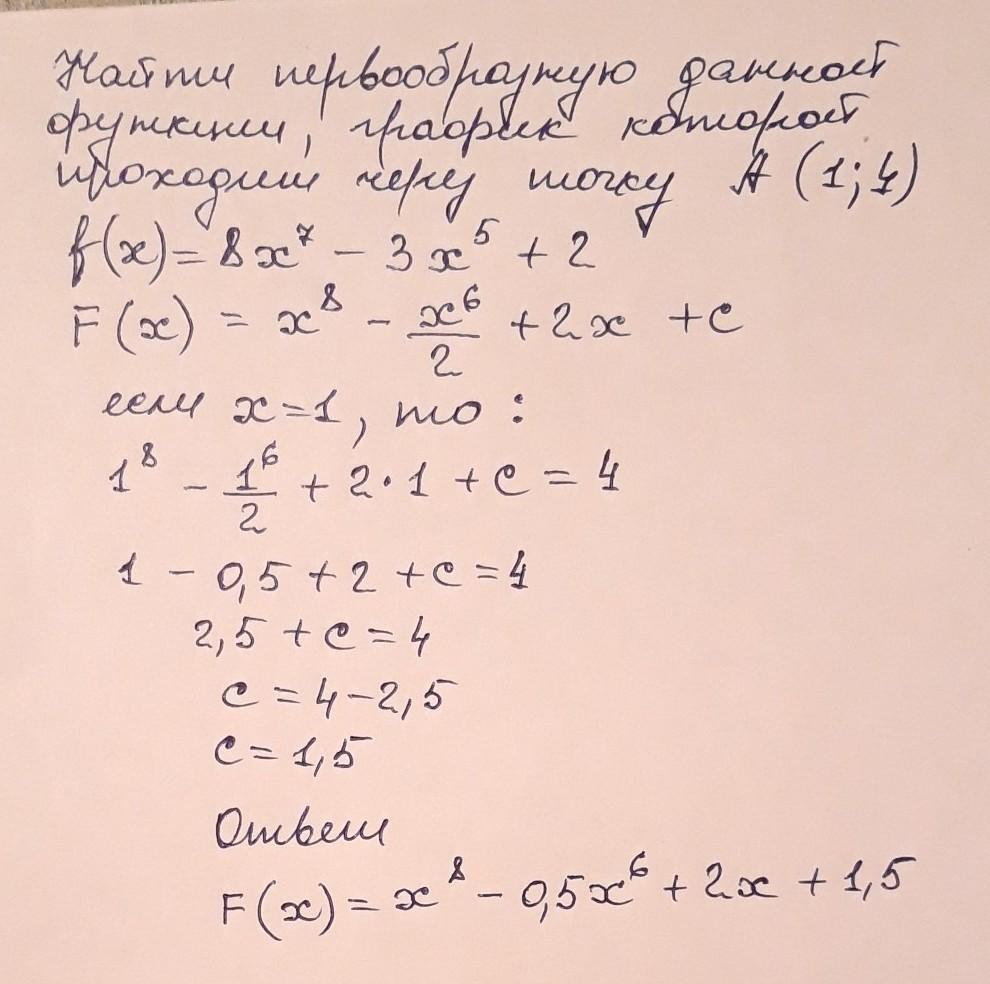 Найти первообразную данной
функции, график которой
проходит через точку A (1;4)
f(x) = 8x⁷ − 3x⁵ + 2
F(x) = x⁸ − x⁶/2 + 2x + c
если x=1, то :
1⁸ − 1⁶/2 + 2·1 + c = 4
1 − 0,5 + 2 + c = 4
2,5 + c = 4
c = 4−2,5
c = 1,5
Ответ
F(x) = x⁸ − 0,5x⁶ + 2x + 1,5